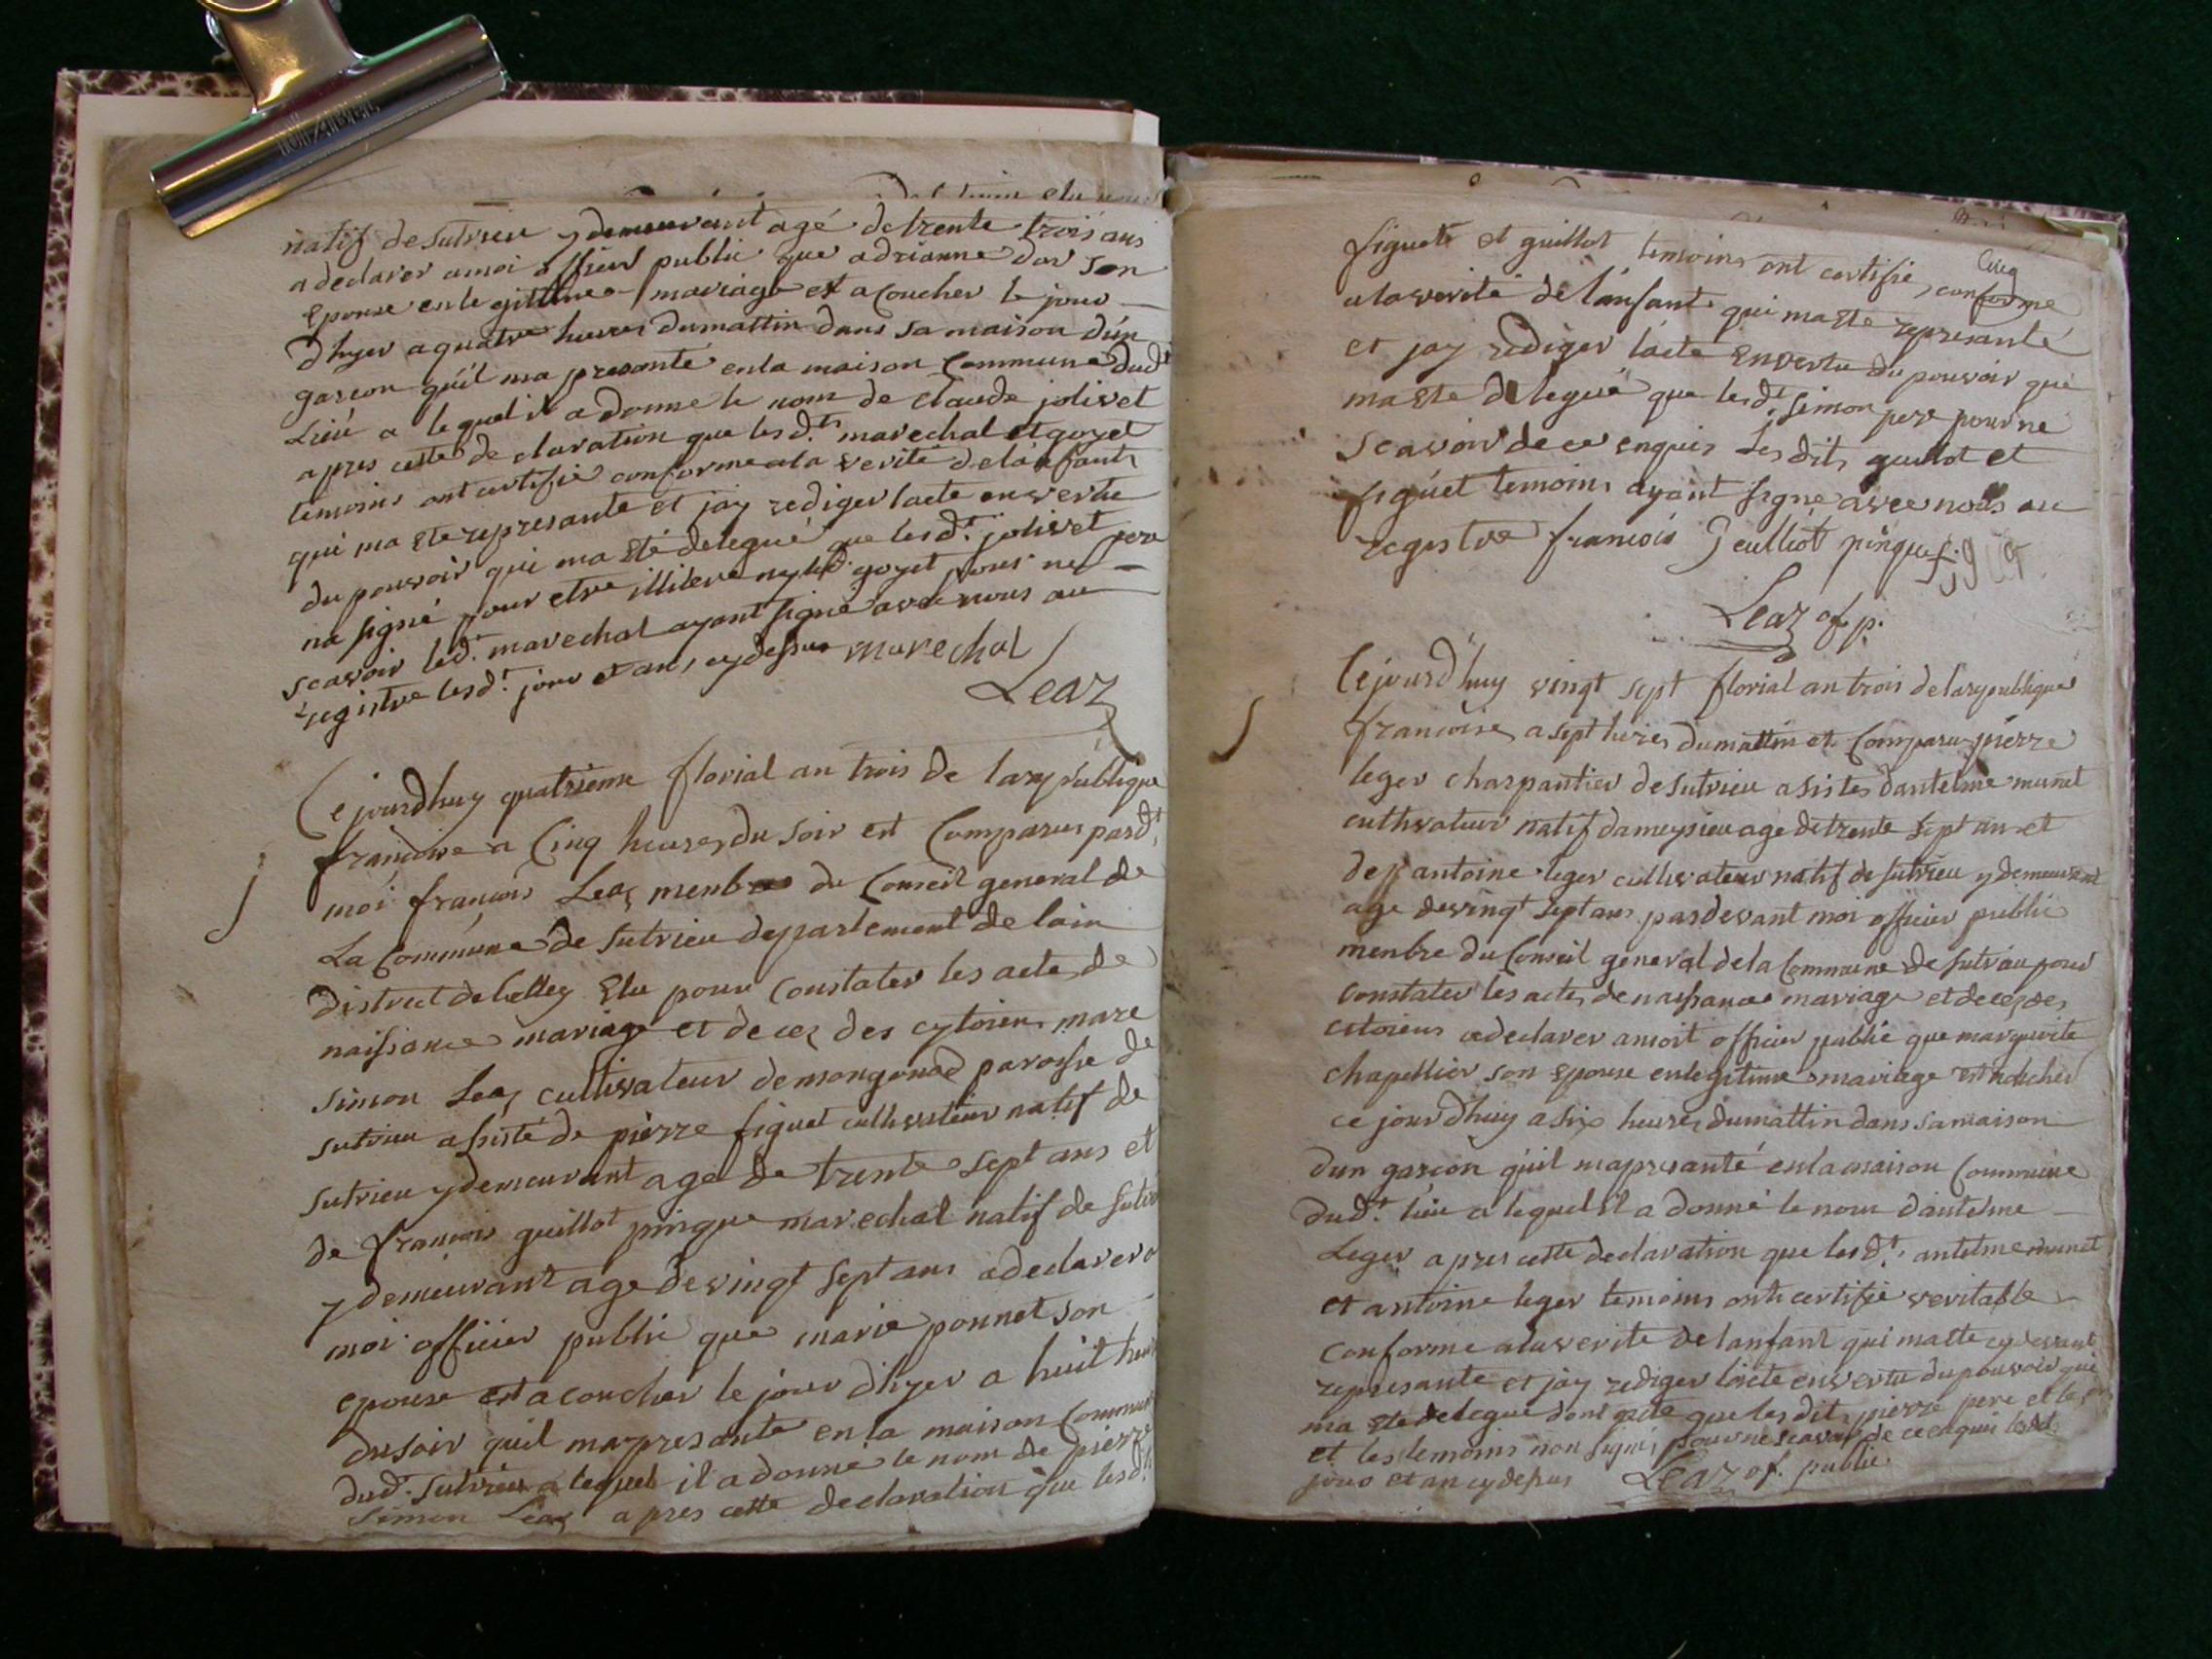 natif de Sutrieu y demeurant agé de trente trois ans
a declarer a moi officier public que adrianne dor son
Epouse en legittime mariage est acoucher le jour
d'hyer a quatre heures du mattin dans sa maison d'un
garcon quil ma presanté en la maison Commune dudt
Lieu a lequel il a donné le nom de claude jolivet
apres cette declaration que les dts marechal et goyet
temoins ont certifié conforme a la verité de lanfant
qui ma ete represante et jay rediger lacte en vertu
du pouvoir qui ma eté delegué que lesdt jolivet pere
na signé pour etre illitere ny led goyet pour ne
scavoir led. marechal ayant signé avec nous au
registre lesdt jour et an cy dessus marechal
Leaz
Cejourdhuy quatrieme florial an trois de la republique
francoise a Cinq heures du soir est Comparus pardt
moi francois Leaz menbre du Conseil general de
La Commune de Sutrieu departement de lain
district de belley Elu pour Constater les acte de
naissance mariage et decez des cytoiens mare
simon Leaz cultivateur de mongonod paroisse de
sutrieu assisté de pierre figuet cultivateur natif de
sutrieu y demeurant age de trente sept ans et
de francois guillot pingue marechal natif de sutri
y demeurant age de vingt sept ans a declarer a
moi officier public que marie ponnet son
epouse est acoucher le jour d'hyer a huit heur
du soir quil ma presante en la maison Commun
dud. Sutrieu a lequel il a donné le nom de pierre
Simon Leaz apres cette declaration que lesdts
Cinq
figuet et guillot temoins ont certifié conforme
a la verité de l'anfant qui ma ete represanté
et jay rediger lacte En vertu du pouvoir que
ma ete delegué que lesdt simon pere pour ne
scavoir de ce enquis Lesdits guillot et
figuet temoins ayant signe avec nous au
registre francois Jeulliot pingue
Leaz of. p.
Cejourd'huy vingt sept florial an trois de la republique
francoise a sept heures du mattin et Comparu pierre
leger charpantier de Sutrieu asistes dantelme munet
cultivateur natif dameysieu age de trente sept an et
de antoine leger cultivateur natif de sutrieu y demeurant
age de vingt sept ans pardevant moi officier public
menbre du Conseil general de la Commune de sutrieu pour
Constater les actes de naissance mariage et decez des
citoiens a declarer a moit officier public que marguerite
chapellier son epouse en legitime mariage est acoucher
ce jourd'huy a six heures du mattin dans sa maison
dun garcon quil ma presanté en la maison Commune
dudt. lieu a lequel il a donné le nom dantelme
Leger apres cette declaration que lesdt. antelme munet
et antoine leger temoins ont certifié veritable
conforme a la verite de lanfant qui ma ete cy devant
represante et jay rediger lacte en vertu du pouvoir qui
ma ete delegué dont acte que lesdit pierre pere et les
et les temoins non signé pour ne scavoir de ce enquis lesdt
jour et an cy depus Leaz of. public